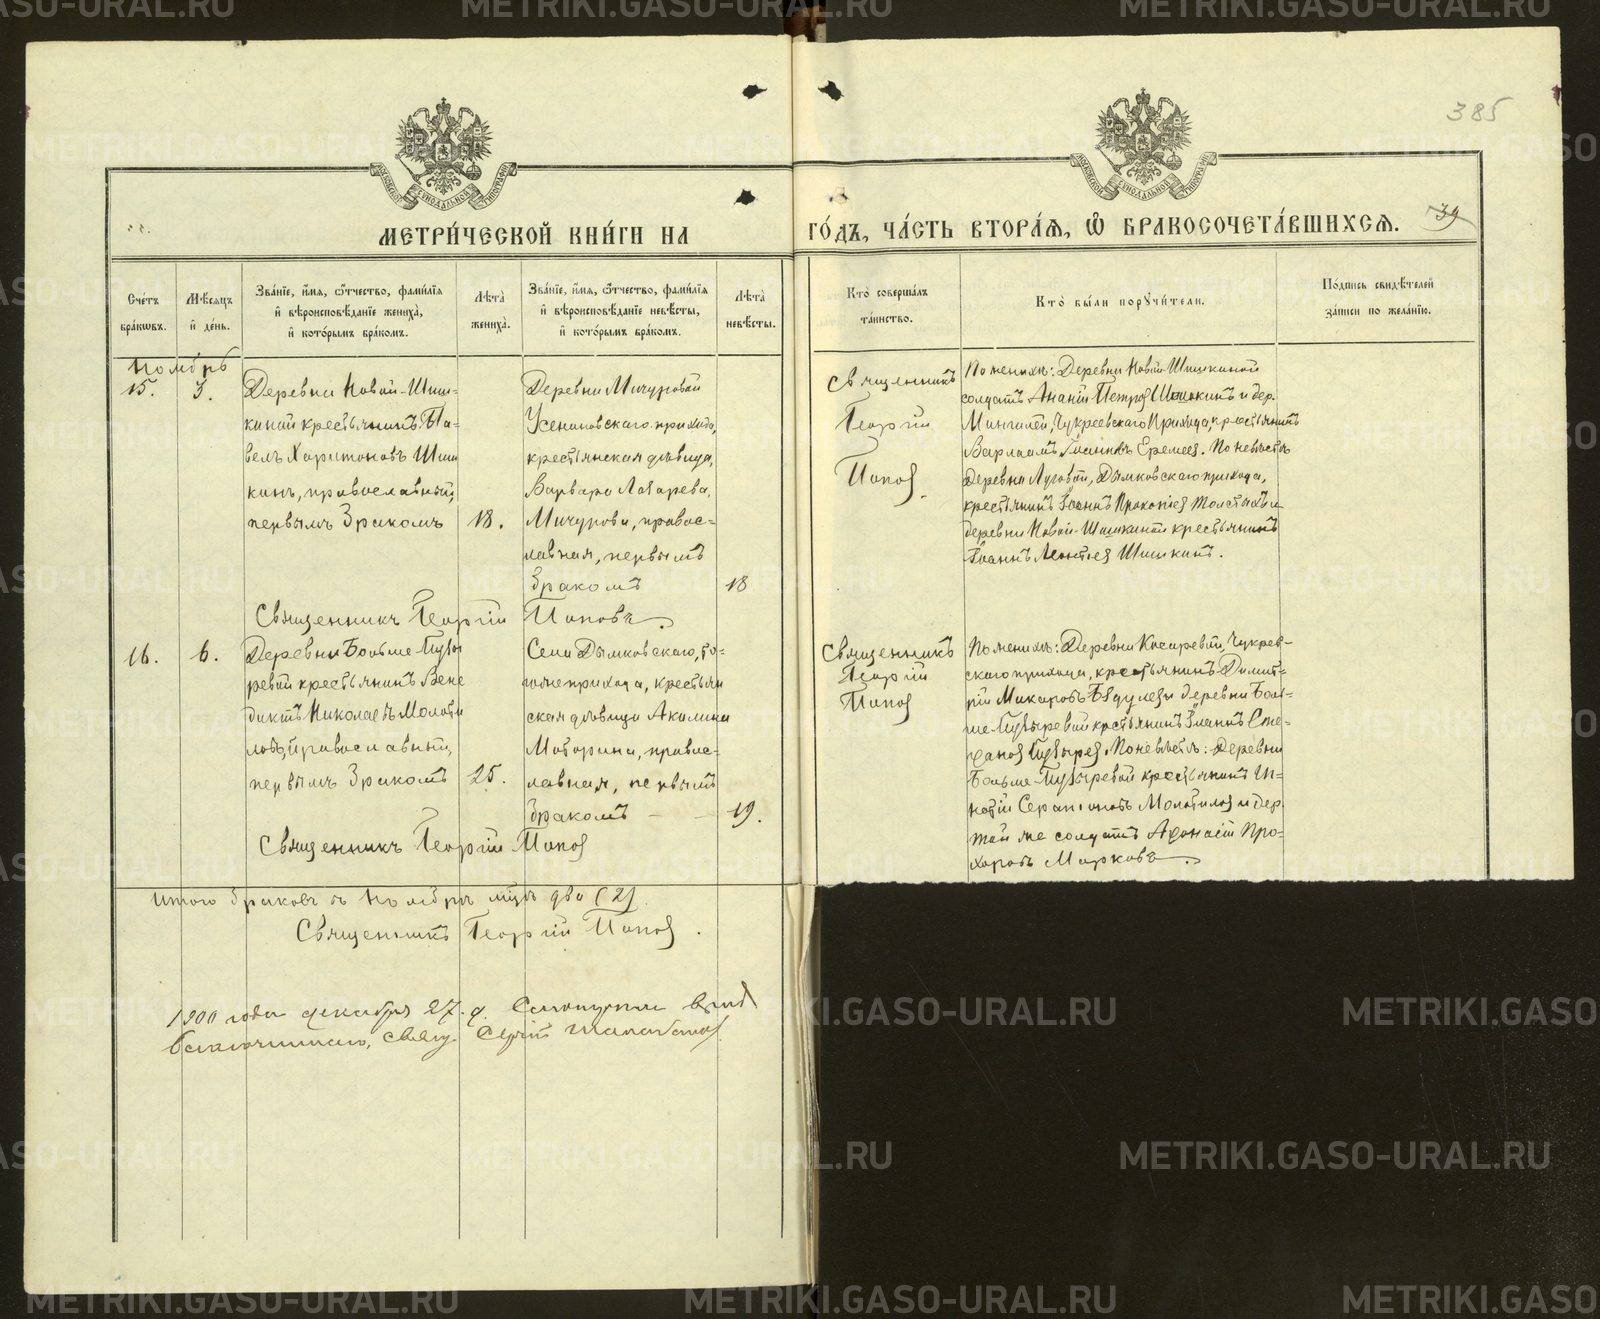 385
МЕТРИ́ЧЕСКОЙ КНИ́ГИ НА ГО́ДЪ, ЧА́СТЬ ВТОРА́Я, Ѡ БРАКОСОЧЕТА́ВШИХСЯ.
39
МОСКОВСКОЙ СѴНОДАЛЬНОЙ ТИПОГРАФІИ
МОСКОВСКОЙ СѴНОДАЛЬНОЙ ТИПОГРАФІИ
Сче́тъ
бра́ковъ.
Мѣ́сяцъ
и҆ де́нь.
Зва́нїе, и҆́мя, ѻ҆́тчество, фами́лїя
и҆ вѣроисповѣ́данїе жениха̀,
и҆ кото́рымъ бра́комъ.
Лѣ́та
жениха̀.
Зва́нїе, и҆́мя, ѻ҆́тчество, фами́лїя
и҆ вѣроисповѣ́данїе невѣ́сты,
и҆ кото́рымъ бра́комъ.
Лѣ́та
невѣ́сты.
Кто̀ соверша́лъ
та́инство.
Кто̀ бы́ли поручи́тели.
По́дпись свидѣ́телей
за́писи по жела́нїю.
Ноябрь
15.
3.
Деревни Новой-Шиш-
киной крестьянинъ Па-
велъ Харитоновъ Шиш
кинъ, православный,
первымъ бракомъ
18.
Деревни Мичуровой
Усениновскаго прихода,
крестьянская дѣвица,
Варвара Лазарева,
Мичурова, правос-
лавная, первымъ
бракомъ
18
Священникъ
Георгій
Попов
По женихѣ: Деревни Новой Шишкиной
солдатъ Ананій Петров Шишкинъ и дер.
Мингалей, Чукреевскаго Прихода, крестьянинъ
Варлаамъ Іоаннов Еремеев. По невѣстѣ
деревни Луговой, Дымковскаго прихода,
крестьянинъ Іоаннъ Прокопіев Толстыхъ и
деревни Новой-Шишкиной крестьянинъ
Іоаннъ Леонтьев Шишкинъ.
Священникъ Георгій Поповъ.
16.
6.
Деревни Больше-Пузы
ревой крестьянинъ Вене
диктъ Николаевъ Молоти
ловъ, православный,
первымъ бракомъ
25.
Села Дымковскаго, то-
гоже прихода, крестьян
ская дѣвица Акилина
Моторина, правос-
лавная, первымъ
бракомъ
19.
Священникъ
Георгій
Попов
По женихѣ: Деревни Косаревой, Чукреев-
скаго прихода, крестьянинъ Димит-
рій Макаровъ Бедулев и деревни Боль-
ше-Пузыревой крестьянинъ Іоаннъ Сте-
фанов Пузырев. По невѣстѣ: Деревни
Больше-Пузыревой крестьянинъ Иг-
натій Серапіоновъ Молотилов и дер.
той же солдатъ Аѳанасій Про-
хоровъ Марковъ.
Священникъ Георгій Попов
Итого браковъ въ Ноябрѣ мцѣ два (2).
Священникъ Георгій Попов.
1900 года декабря 27 д.
свящ. Сергій